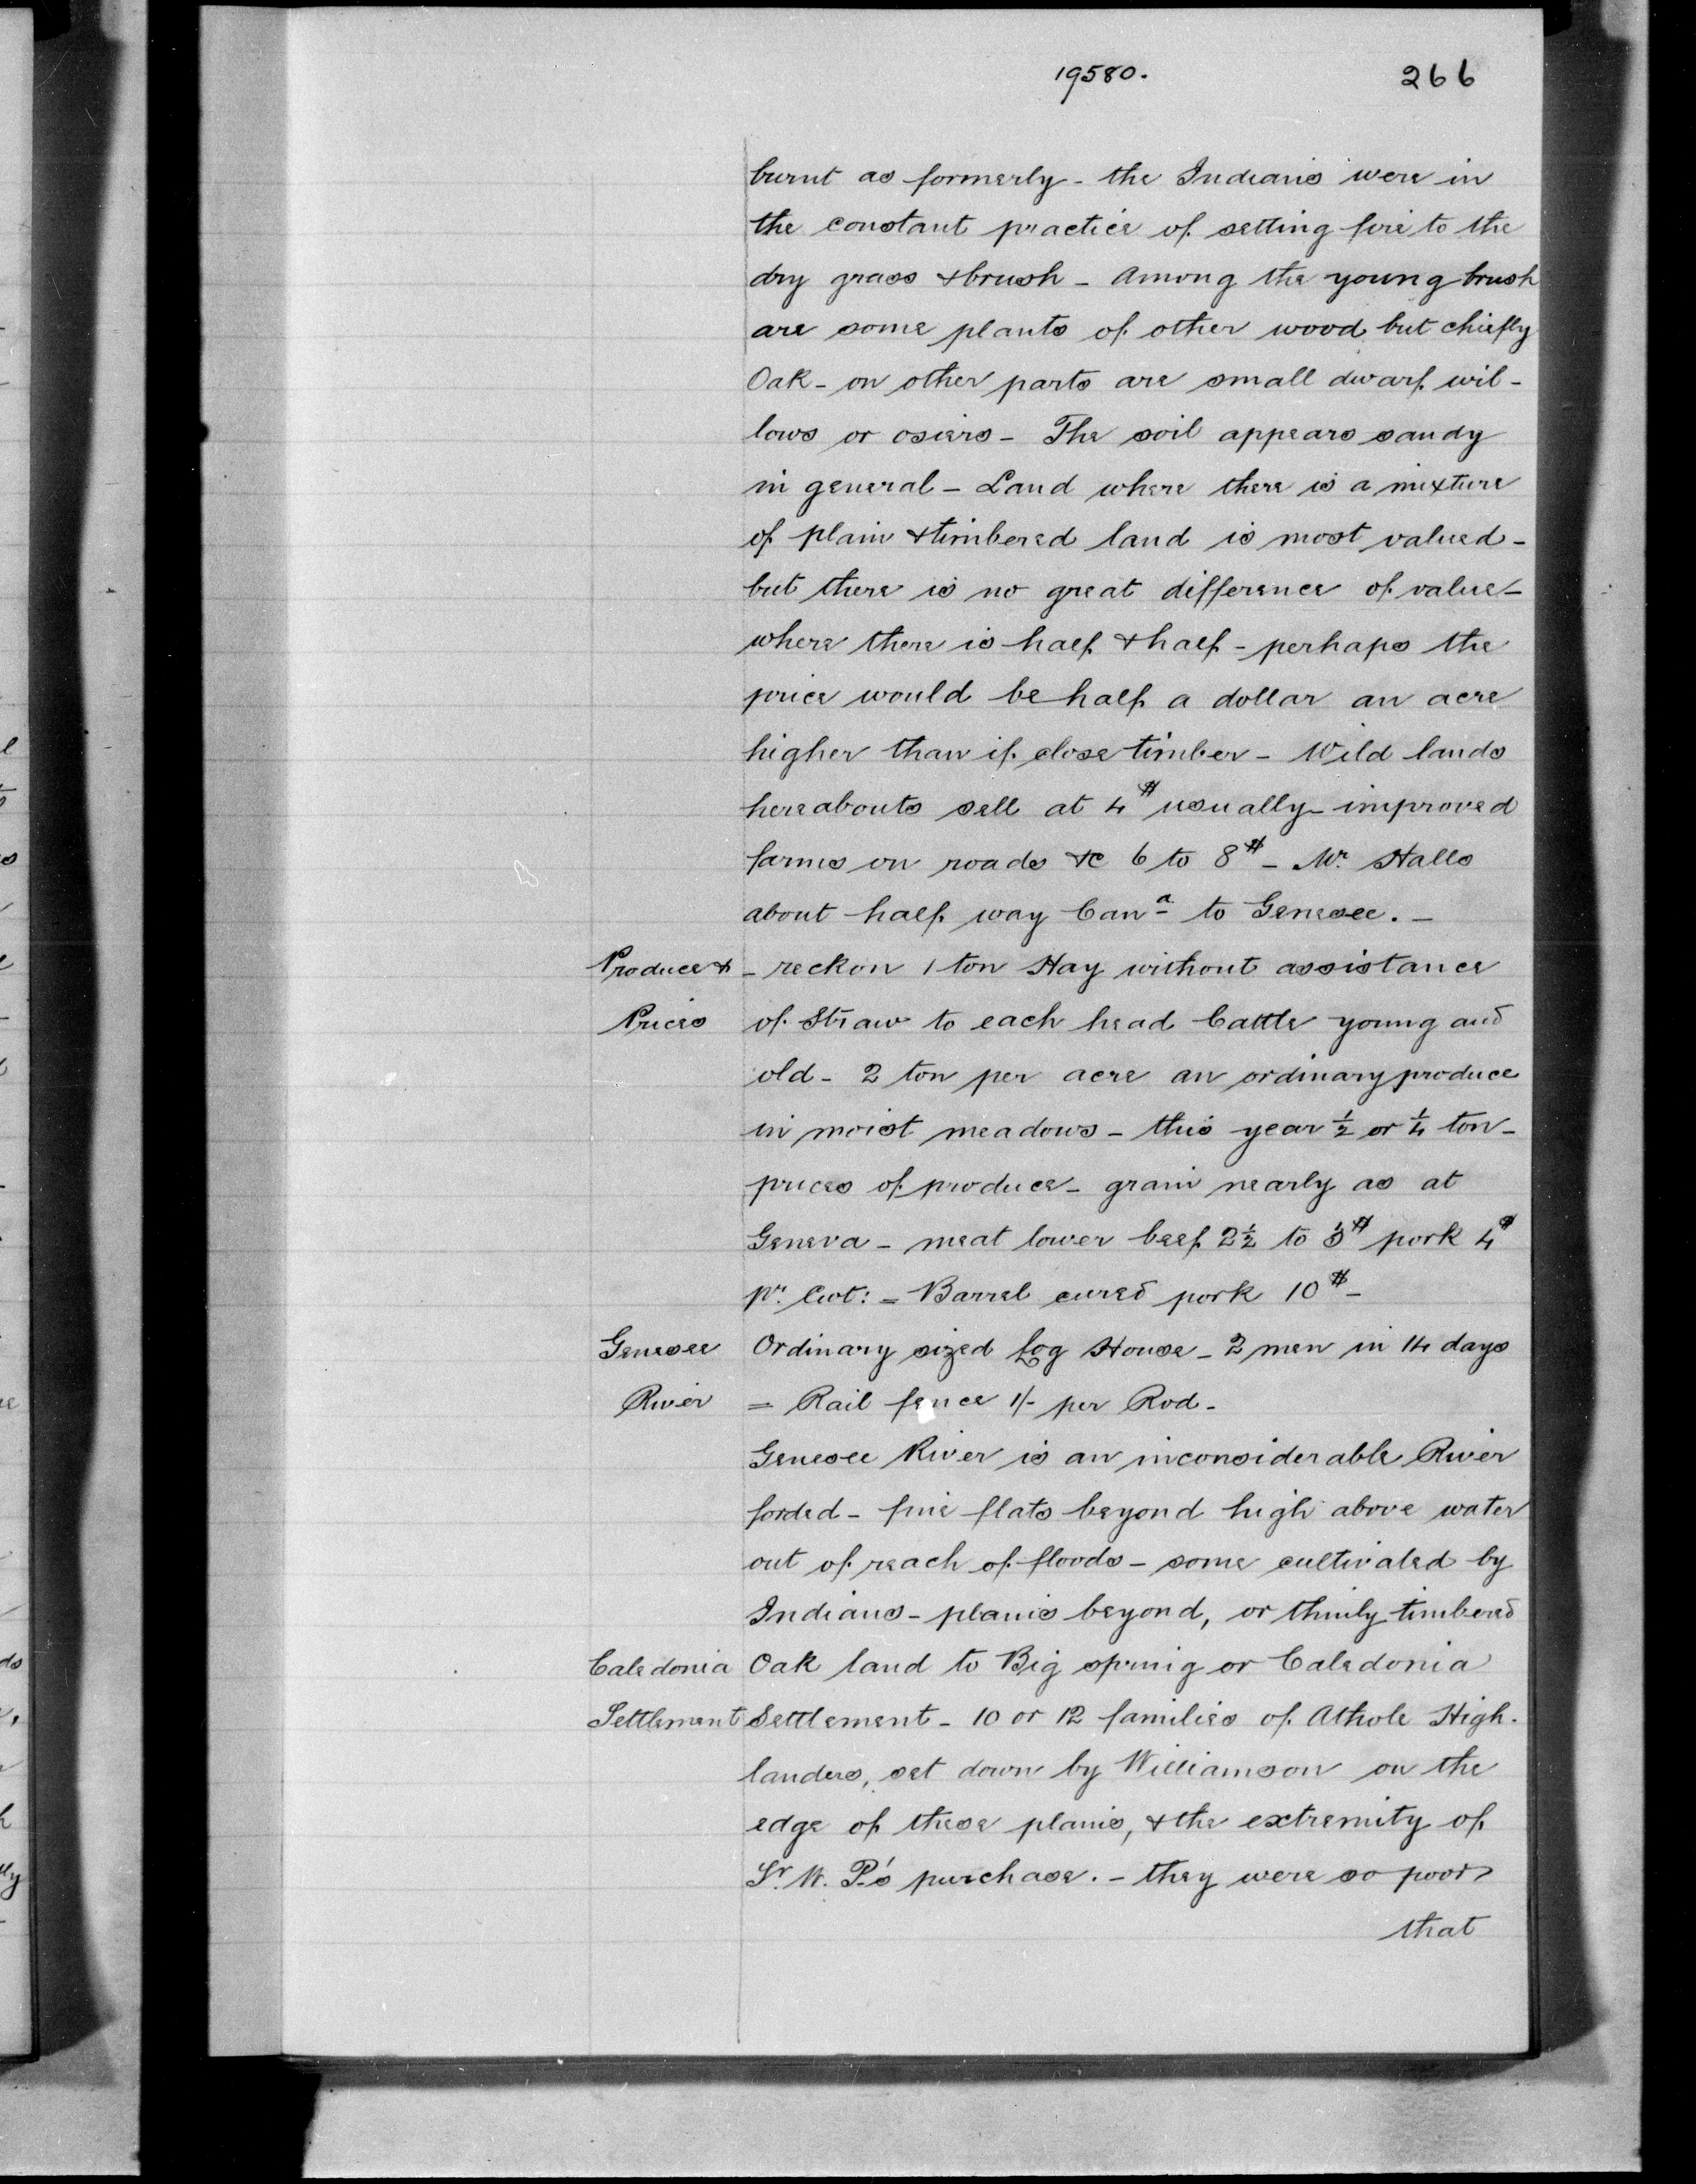 19580.
266
burnt as formerly - the Indians were in
the constant practice of setting fire to the
dry grass & brush - Among the young brush
are some plants of other wood but chiefly
Oak - on other parts are small dwarf wil-
lows or osiers - The soil appears sandy
in general - Land where there is a mixture
of plain & timbered land is most valued -
but there is no great difference of value -
where there is half & half - perhaps the
price would be half a dollar an acre
higher than if close timber - Wild lands
hereabouts sell at 4$ usually - improved
farms on roads &c 6 to 8$ - Mr. Halls
about half way Cana to Genesee. -
Produce & - reckon 1 ton Hay without assistance
Prices of Straw to each head Cattle young and
old - 2 ton per acre an ordinary produce
in moist meadows - this year ½ or ¼ ton -
prices of produce - grain nearly as at
Geneva - meat lower beef 2½ to 3$ pork 4$
pr. Cwt: = Barrel cured pork 10$ -
Genesee Ordinary sized Log House - 2 men in 14 days
River = Rail fence 1/- per Rod -
Genesee River is an inconsiderable River
forded - fine flats beyond high above water
out of reach of floods - some cultivated by
Indians - plains beyond, or thinly timbered
Caledonia Oak land to Big spring or Caledonia
Settlement Settlement - 10 or 12 families of Athole High-
landers, set down by Williamson on the
edge of these plains, & the extremity of
Sr. W. P.'s purchase. - they were so poor
that